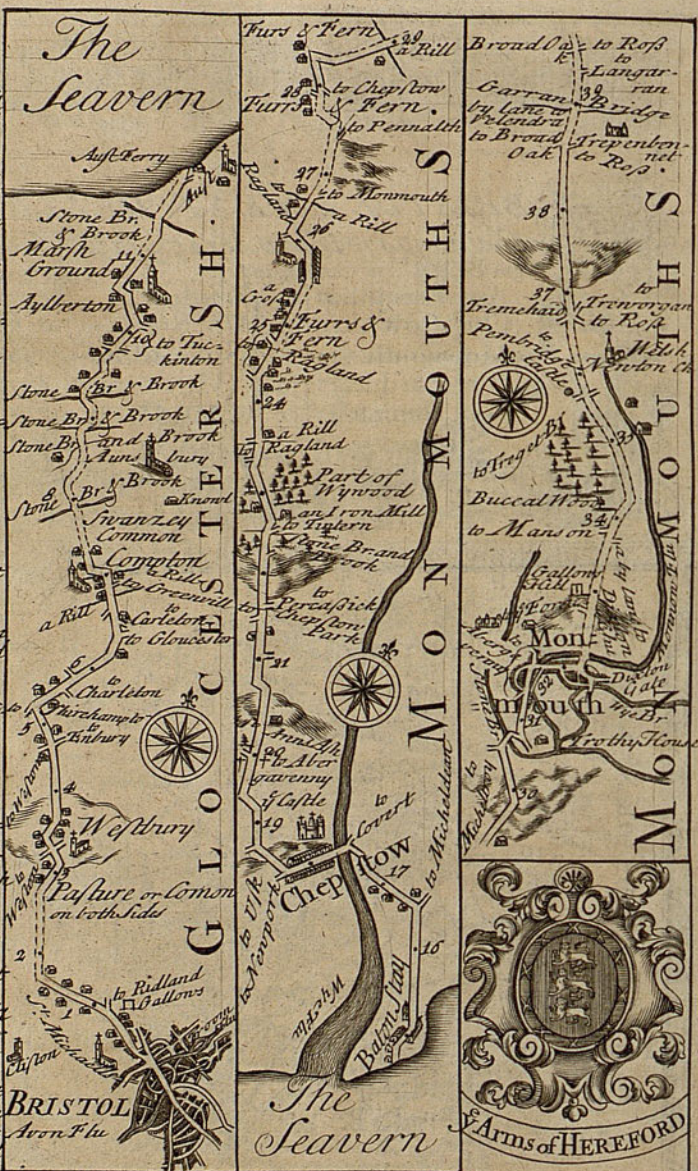 The
Seavern
Aust Ferry
Aust
Stone Br.
& Brook
Marsh
Ground
11
Aylberton
10
to Tuc-
kinton
Stone Br & Brook
Stone Br. & Brook
Stone Br and Brook
Auns bury
Stone Br & Brook
8
Knowl
Swanzey
Common
Compton
a Rill
to Greenvill
a Rill
to
Carleton
to Gloucester
6
to
Charleton
5
to
Enbury
to Westong
4
Westbury
3
Pasture or Comon
on both Sides
2
to Ridland
Gallows
1
St. Michaels
Clifton
Froom
Flu
BRISTOL
Avon Flu
GLOCESTERSH.
Furs & Fern
29
a Rill
28
to Chepstow
Furrs & Fern.
to Pennalth
27
to
Ragland
to Monmouth
a Rill
26
a
Cross
25
Furrs &
Fern
to
Ragland
24
a Rill
to
Ragland
Part of
Wywood
an Iron Mill
to Tintern
Stone Br. and
Brook
to
Percassick
to
Chepstow
Park
21
Anns Ash
20
to Aber
gavenny
ye Castle
19
to
Covert
Chepstow
17
to Micheldean
to Usk
to Newpork
16
Wye Flu
Baton Stay
The
Seavern
MONMOUTHS
Broad Oa
k
to Ross
to
Langar-
ran
39
Garran Bridge
by lane to
Velendra
to Broad
Oak
Trepenben-
net
to Ross
38
37
Tremehaid
to
Trevorgan
to Ross
to
Pembridge
Castle
Welsh
Newton Ch
35
to Treget B
Buccal Wood
34
to Manson
a by Lane to
Dixton
Gallows
Hill
Monnow Flu
Mon=
mouth
Dixton
Gate
32
Wye Br
31
Trothy House
30
MONMOUTHS
ye Arms of HEREFORD